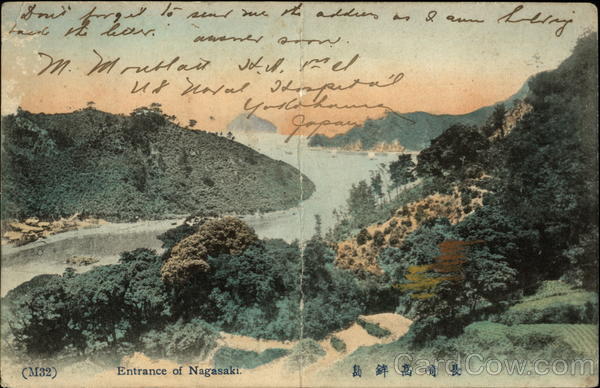 Don't forget to send me the address as I am holding
back the letter. answer soon.
M. H.A. 1st Cl
US Naval Hospital
Yokohama
Japan
(M32) Entrance of Nagasaki. 島鉾高 長
CardCow.com